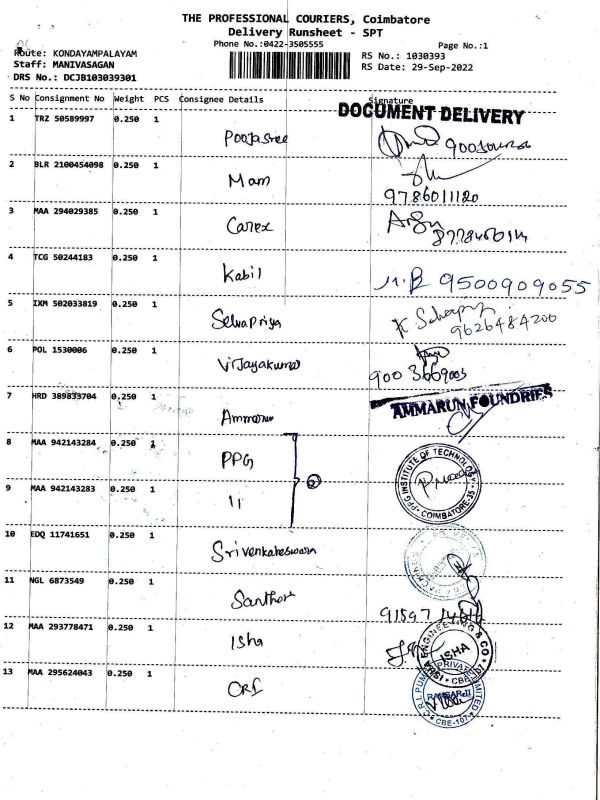 THE PROFESSIONAL COURIERS, Coimbatore
Delivery Runsheet - SPT
Phone No.:0422-3505555
Page No.:1
Route: KONDAYAMPALAYAM
Staff: MANIVASAGAN
DRS No.: DCJB103039301
RS No.: 1030393
RS Date: 29-Sep-2022
S No Consignment No Weight PCS Consignee Details Signature
DOCUMENT DELIVERY
1 TRZ 50589997 0.250 1 Poojasree
2 BLR 2100454098 0.250 1 Mam
9786011120
3 MAA 294029385 0.250 1 Carex
4 TCG 50244183 0.250 1 Kabil 9500909055
5 IXM 502033819 0.250 1 Selvapriya
9626484200
6 POL 1530006 0.250 1 Vijayakumar
900 3669003
7 HRD 389833704 0.250 1 Ammarun
AMMARUN FOUNDRIES
8 MAA 942143284 0.250 1 PPG
PPG INSTITUTE OF TECHNOLOGY COIMBATORE-35
9 MAA 942143283 0.250 1 11
10 EDQ 11741651 0.250 1 Srivenkateswara
11 NGL 6873549 0.250 1
12 MAA 293778471 0.250 1 Isha
ISHA
13 MAA 295624043 0.250 1 CRI
C.R.I. PUMPS PRIVATE LIMITED
CBE-107